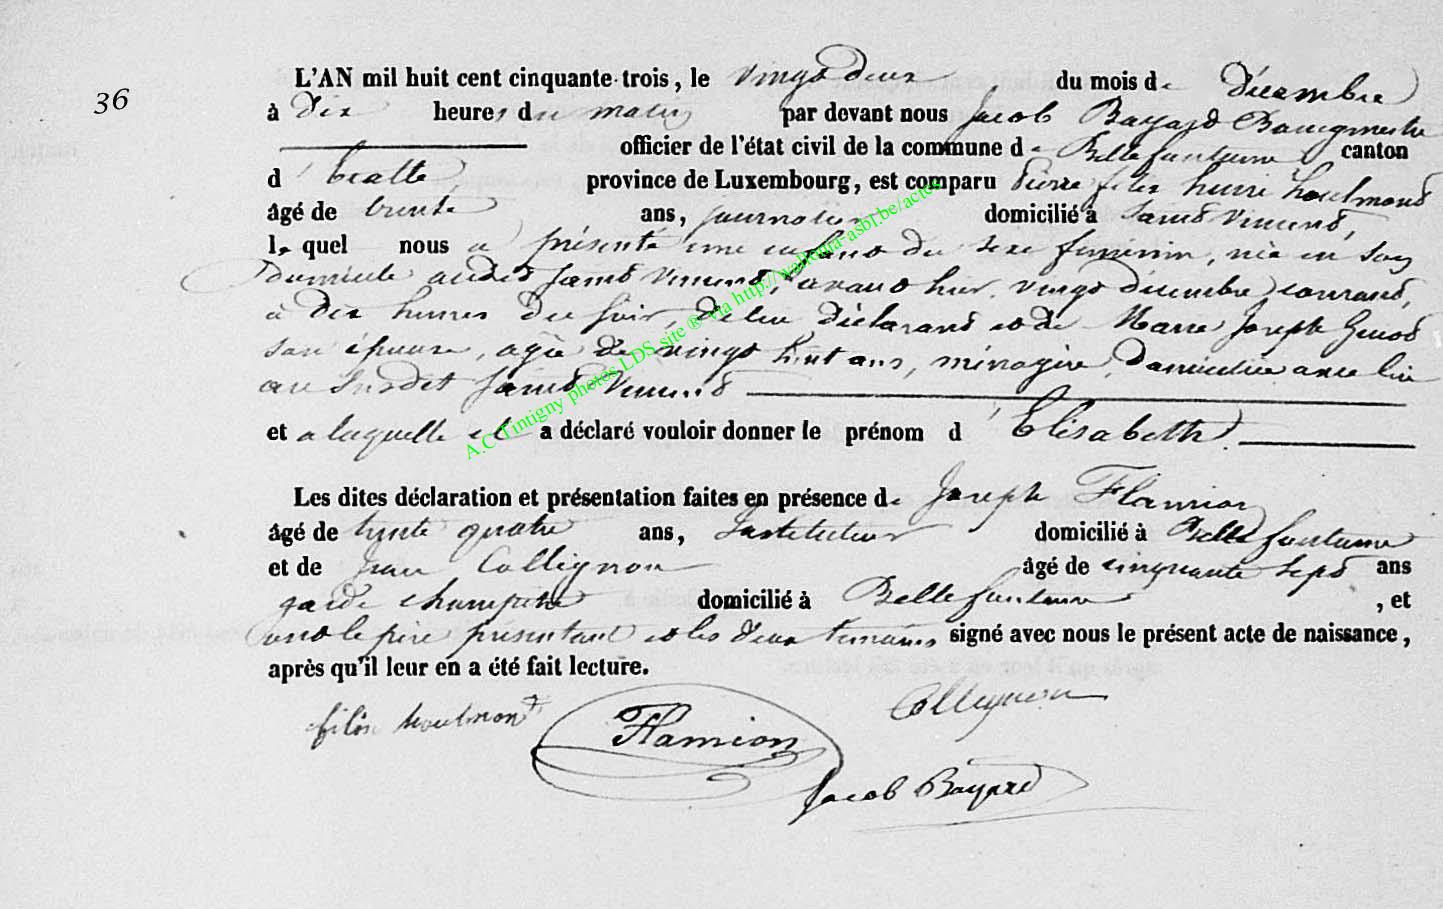 36
L'AN mil huit cent cinquante-trois, le vingt deux du mois de décembre
à dix heures du matin par devant nous Jacob Bayard Bourgmestre
officier de l'état civil de la commune de Bellefontaine canton
d'Etalle province de Luxembourg, est comparu Pierre felix henri houlmont
âgé de trente ans, journalier domicilié à Saint Vincent,
le quel nous a présenté une enfant du sexe féminin, née en son
domicile audit Saint Vincent, avant hier vingt décembre courant,
à dix heures du soir, de lui déclarant et de Marie Joseph
son épouse, agée de vingt huit ans, ménagère, domiciliée avec lui
au susdit Saint Vincent
et a laquelle il a déclaré vouloir donner le prénom d'Élisabeth
Les dites déclaration et présentation faites en présence de Joseph Flamion
âgé de trente quatre ans, Instituteur domicilié à Bellefontaine
et de Jean Collignon âgé de cinquante sept ans
garde champetre domicilié à Bellefontaine, et
ont le père présentant et les deux témoins signé avec nous le présent acte de naissance,
après qu'il leur en a été fait lecture.
houlmont Flamion Collignon
Jacob Bayard
A.C Tintigny photos LDS site ® via http://wallonia-asbl.be/actes